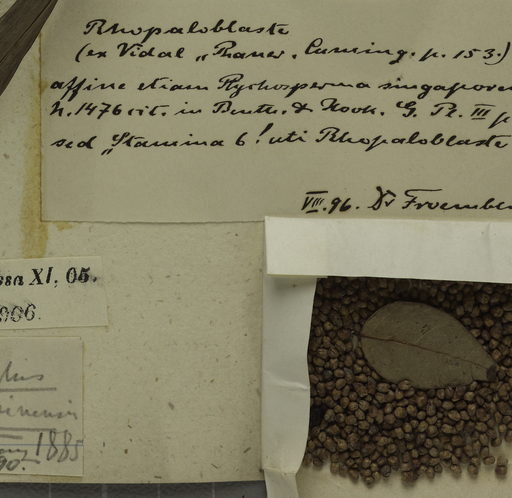 Rhopaloblaste
(ex Vidal „Phaner. Cuming. p. 153.)
affine etiam Ptychosperma singaporen
N. 1476 cit. in Benth. & Hook. G. Pl. III p
sed „Stamina 6! uti Rhopaloblaste
VIII. 96. Dr Froember
XI, 05.
906.
inensis
1885
90.